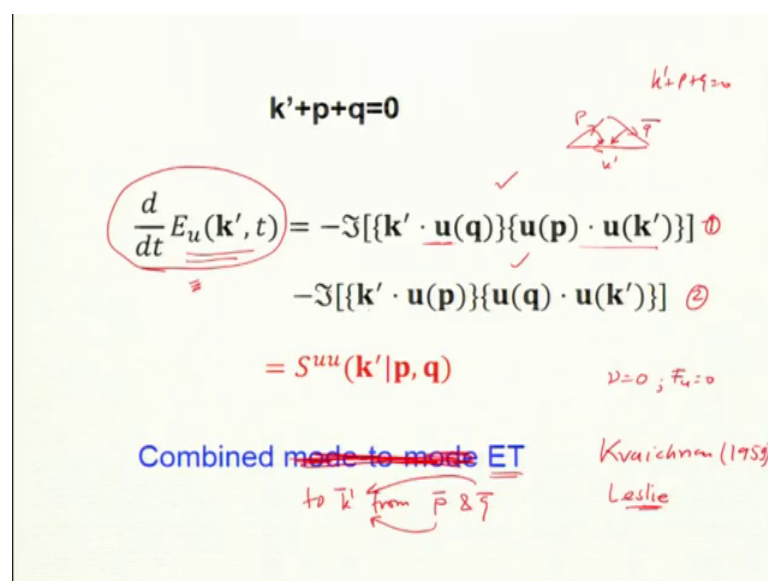 k'+p+q=0
k'+p+q=0
p q̅
k'
d/dt E_u(k', t) = −ℑ[{k' · u(q)}{u(p) · u(k')}] ①
−ℑ[{k' · u(p)}{u(q) · u(k')}] ②
= S^{uu}(k'|p, q)
ν=0 ; F_u=0
Combined mode to mode ET
to k̅' from p̅ & q̅
Kraichnan (1959)
Leslie